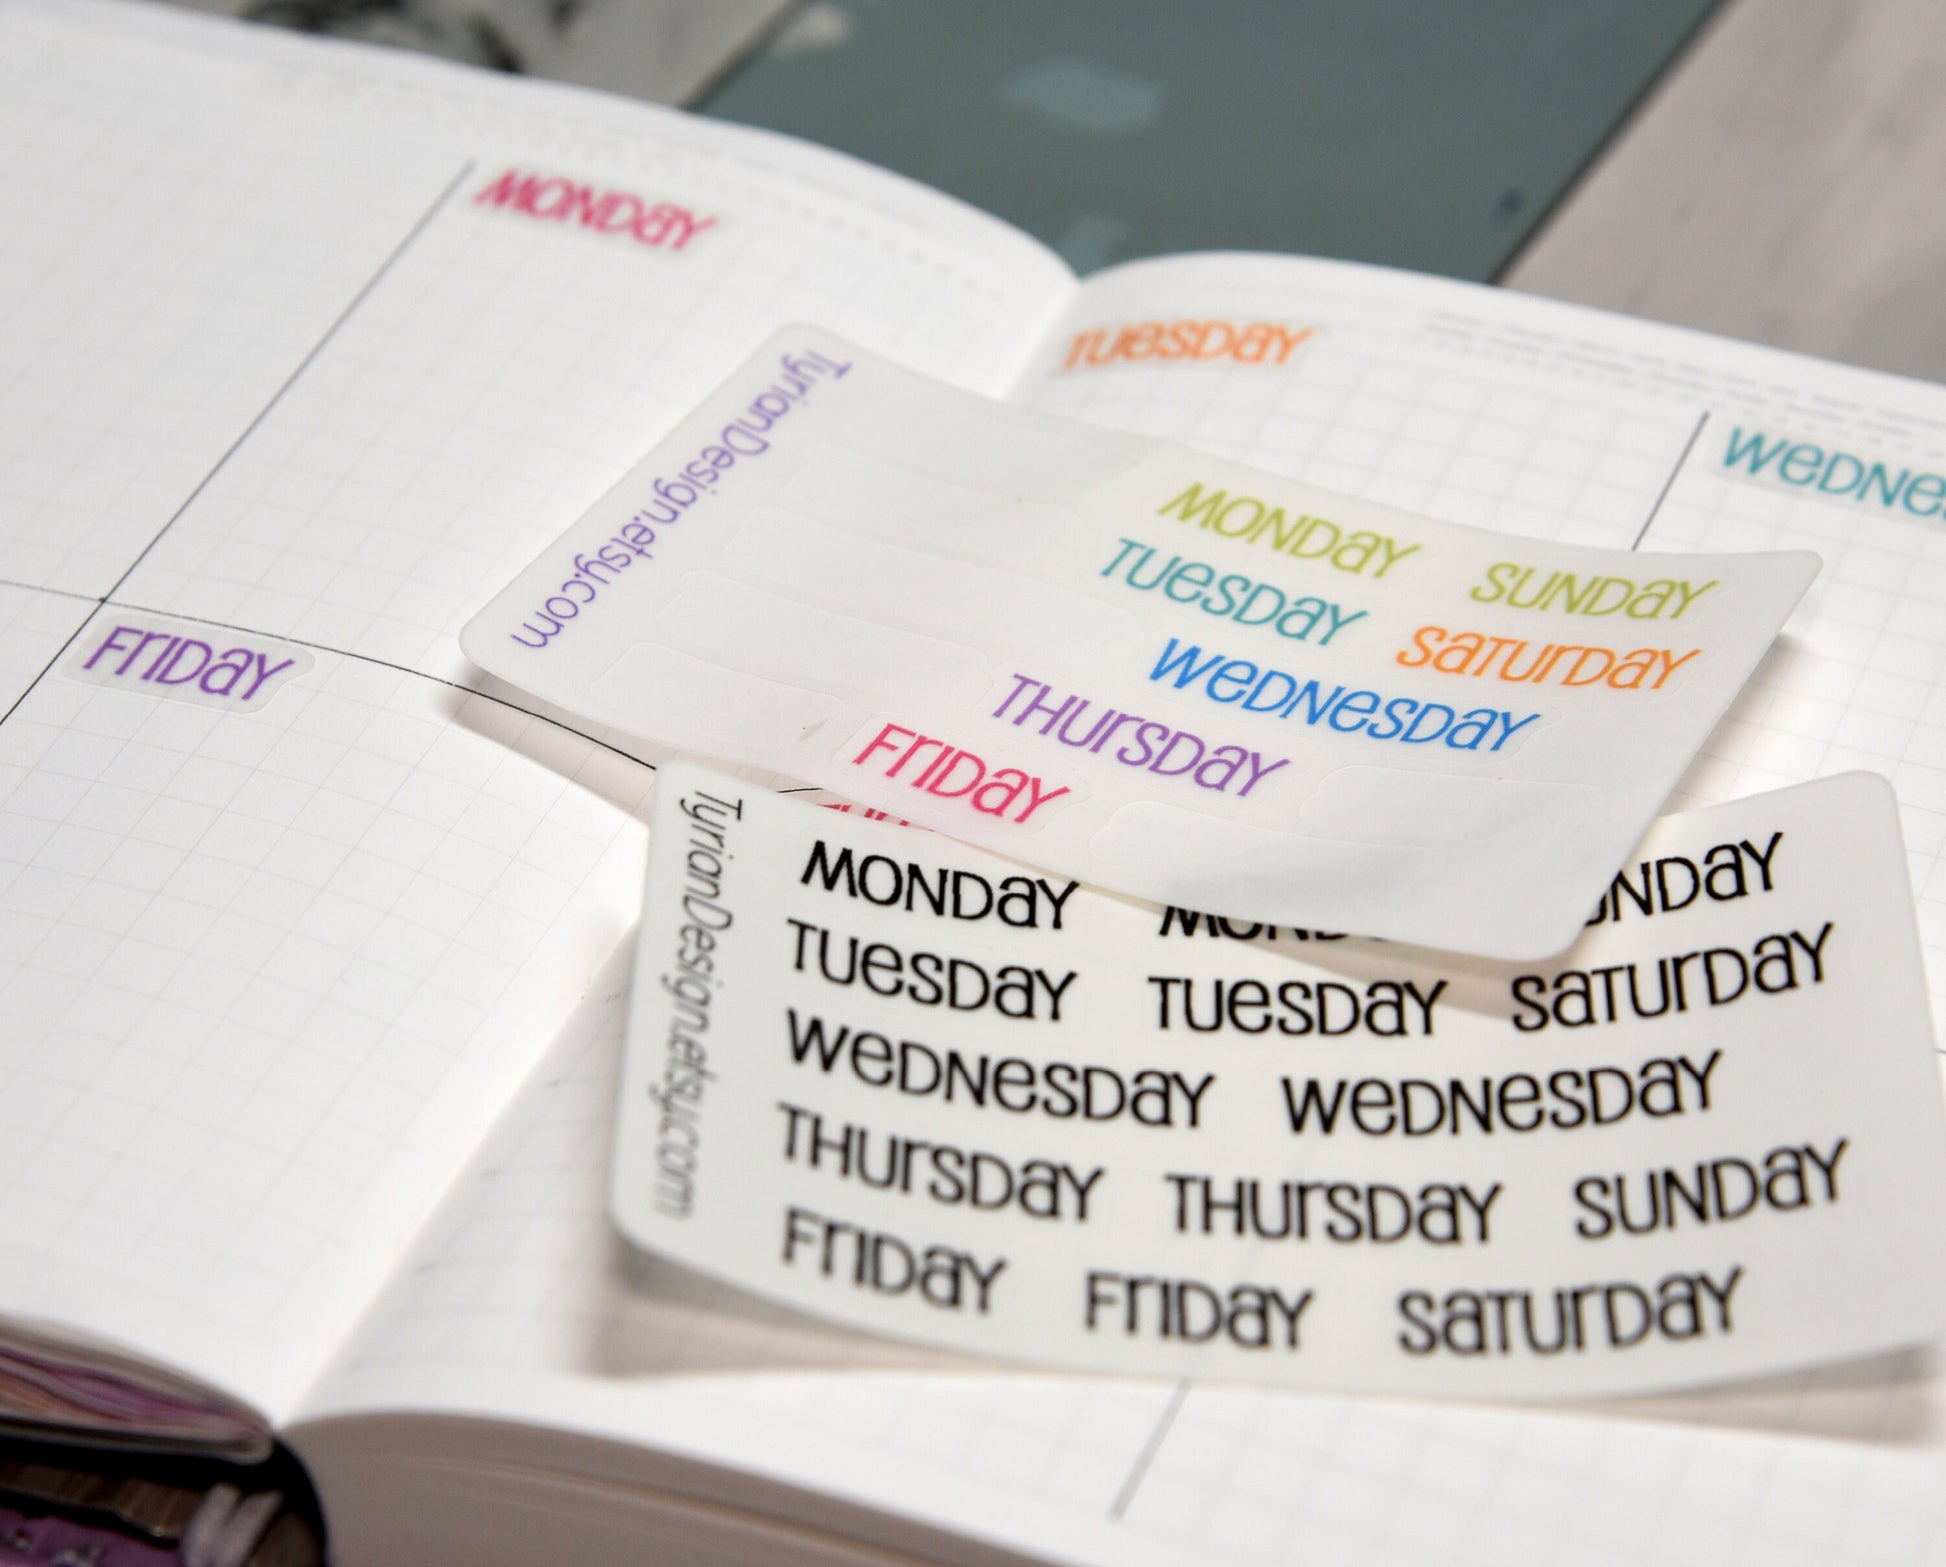 MONDAY
TUESDAY
WEDNES
FRIDAY
TyrianDesign.etsy.com
MONDAY SUNDAY
TUESDAY SATURDAY
WEDNESDAY
THURSDAY
FRIDAY
TyrianDesign.etsy.com
MONDAY MOND NDAY
TUESDAY TUESDAY SATURDAY
WEDNESDAY WEDNESDAY
THURSDAY THURSDAY SUNDAY
FRIDAY FRIDAY SATURDAY